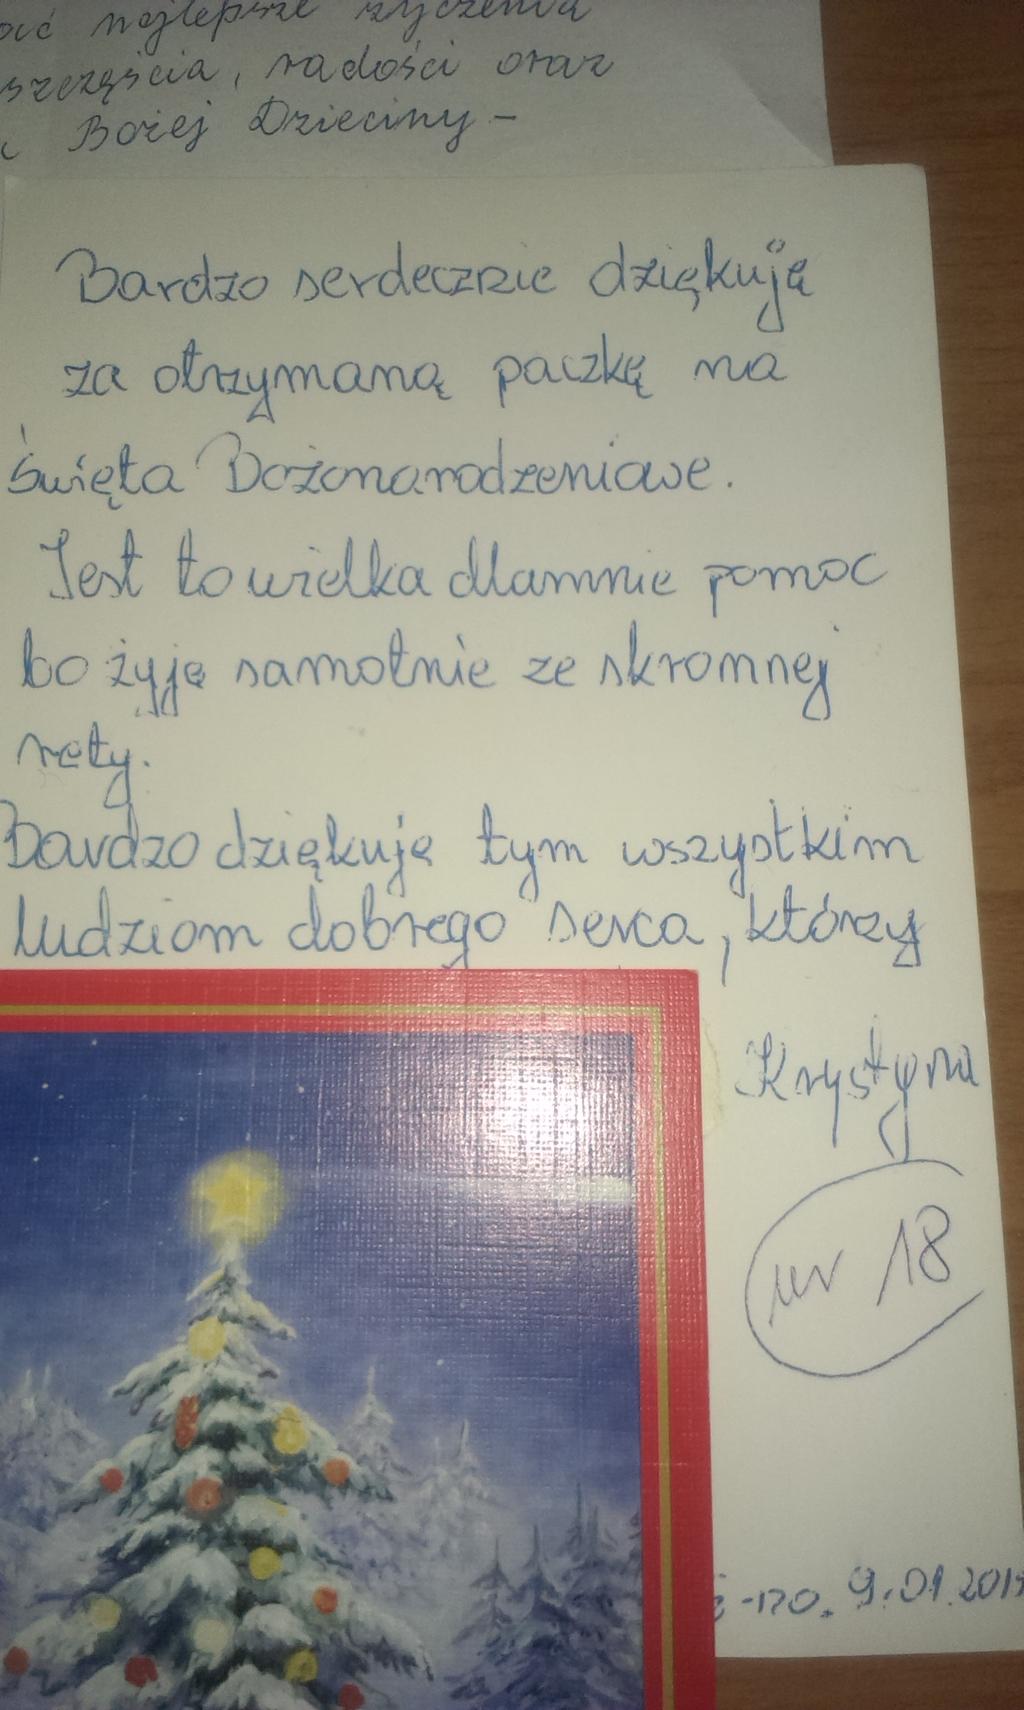 najlepsze życzenia
szczęścia, radości oraz
Bożej Dzieciny -
Bardzo serdecznie dziękuję
za otrzymaną paczkę na
święta Bożonarodzeniowe.
Jest to wielka dlamnie pomoc
bo żyję samotnie ze skromnej
rety.
Bardzo dziękuję tym wszystkim
ludziom dobrego serca, którzy
Krystyna
nr 18
-no. 9.01.201